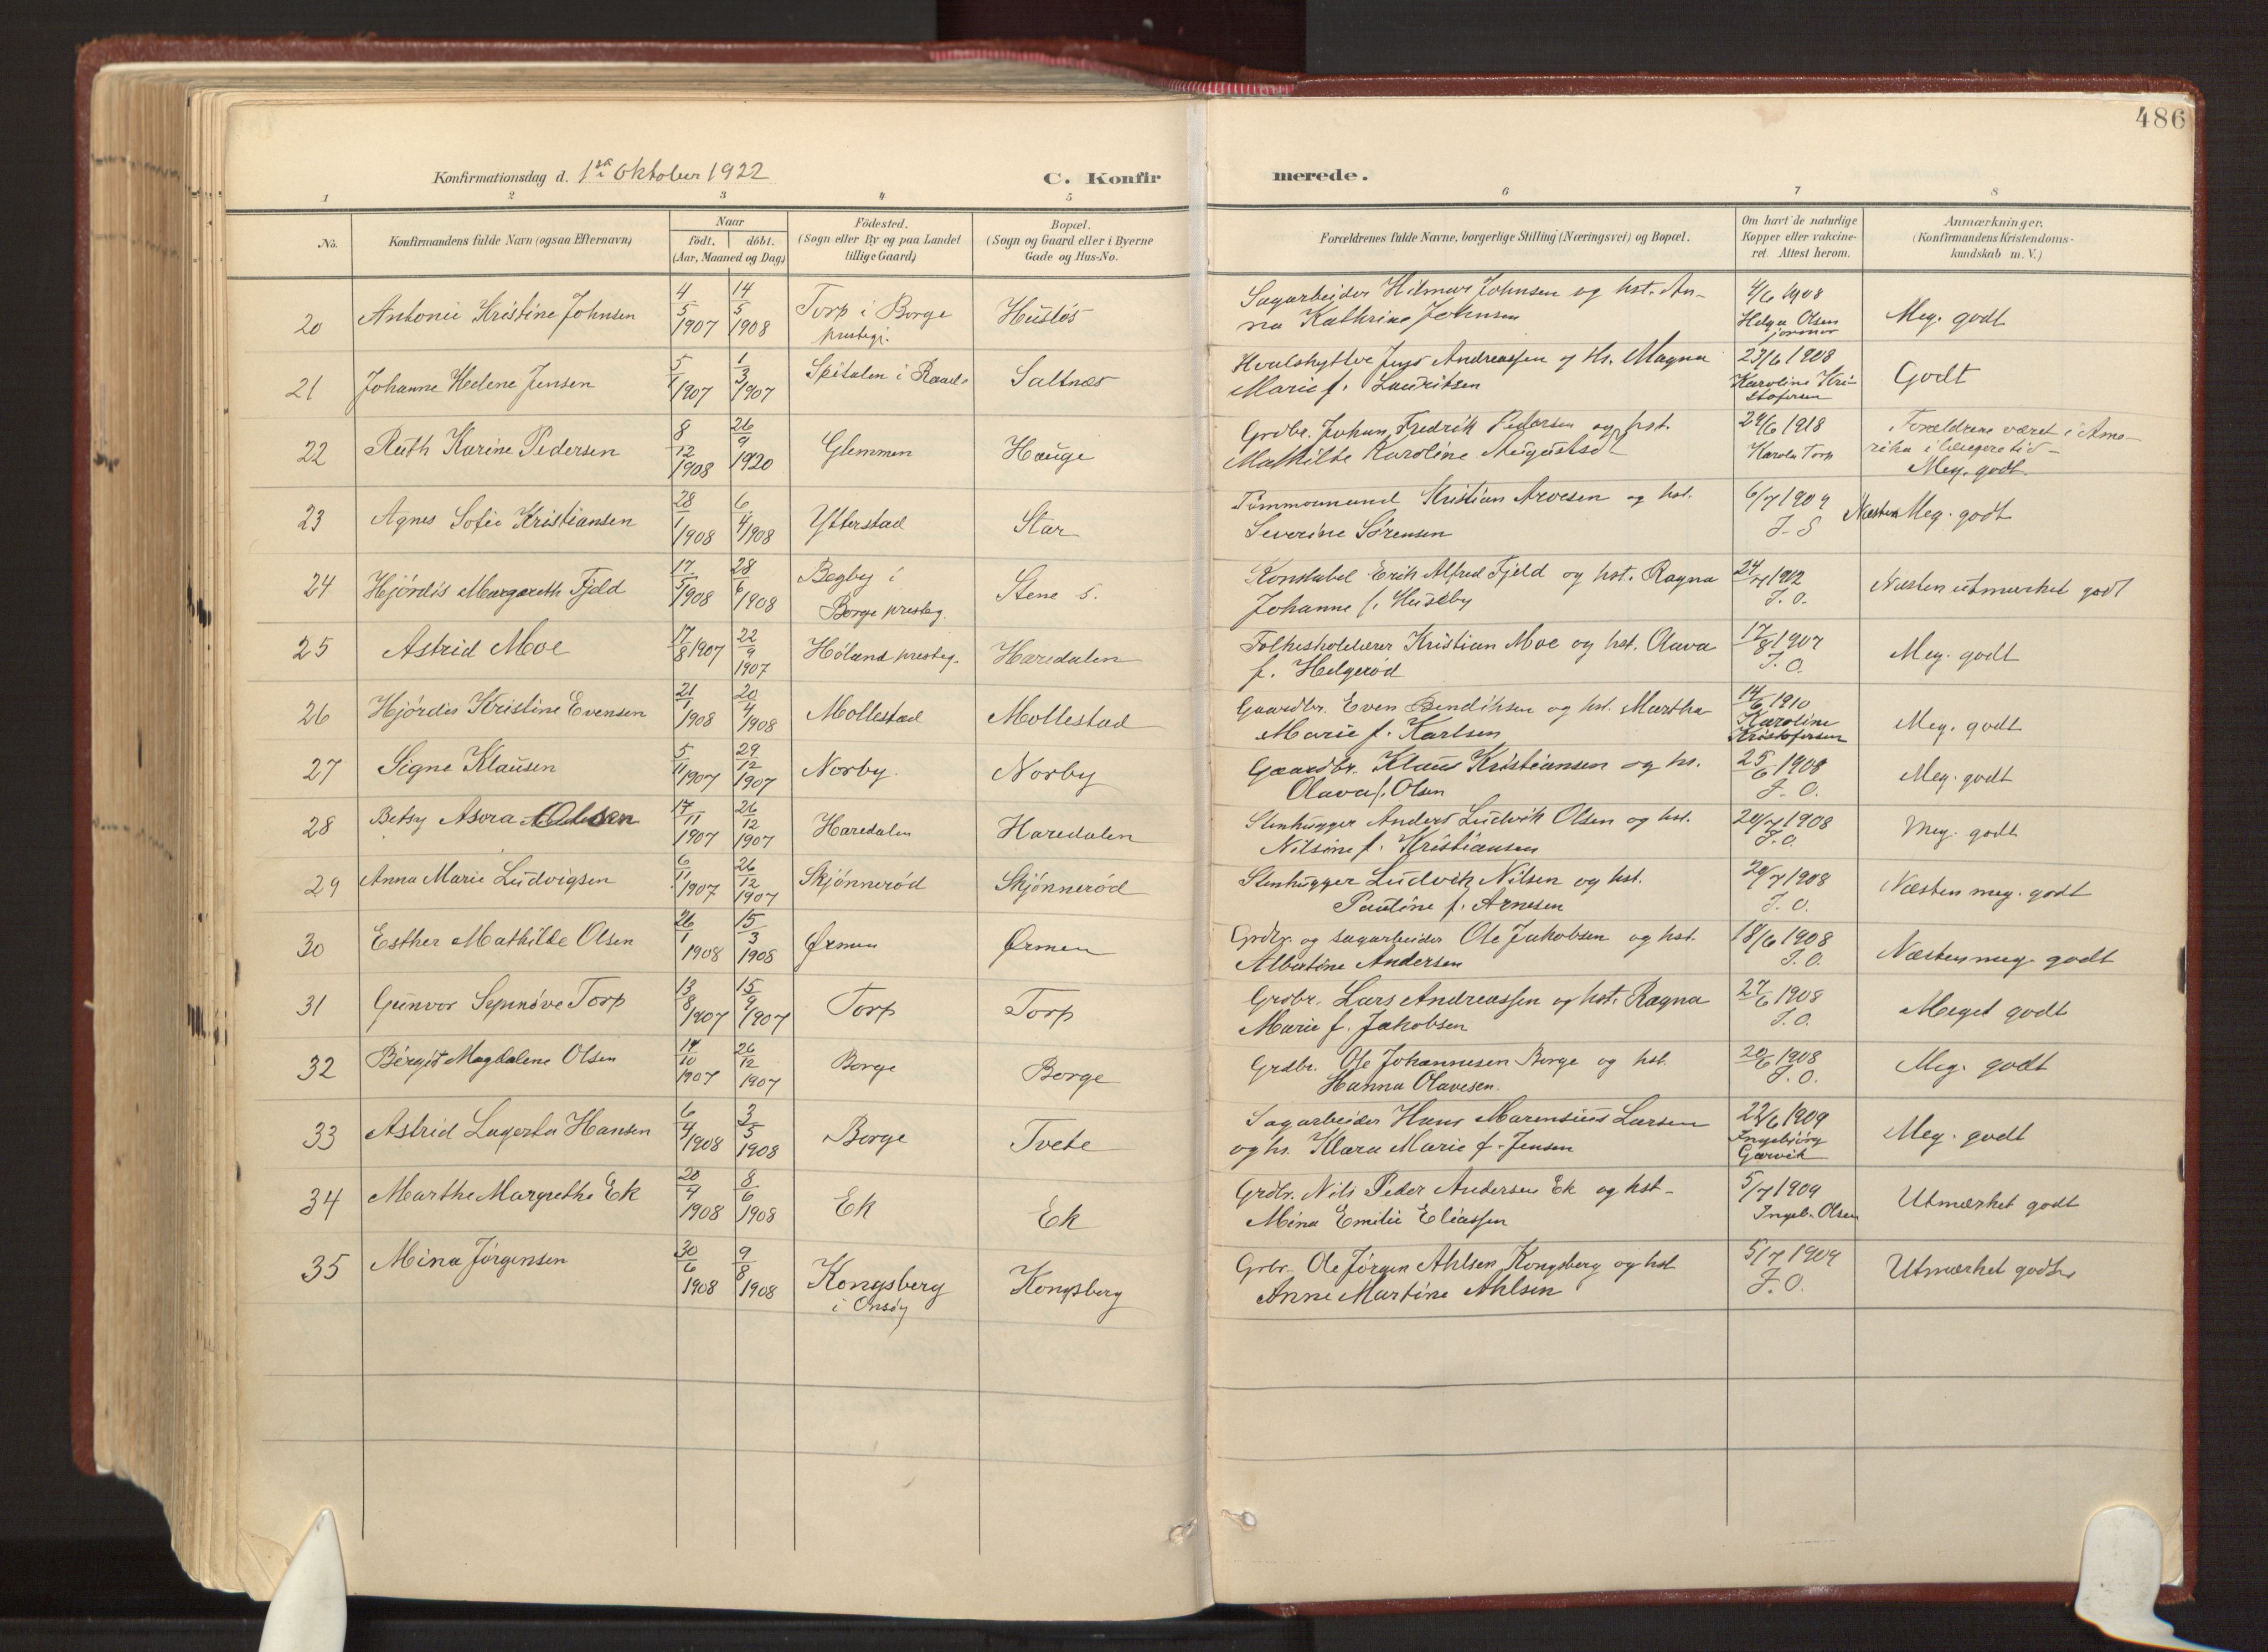 486
Konfirmationsdag d. 1ste Oktober 1922
C. Konfirmerede.
1 2 3 4 5 6 7 8
No.
Konfirmandens fulde Navn (ogsaa Efternavn)
Naar
födt. döbt.
(Aar, Maaned og Dag)
Födested.
(Sogn eller By og paa Landet
tillige Gaard)
Bopæl.
(Sogn og Gaard eller i Byerne
Gade og Hus-No.
Forældrenes fulde Navne, borgerlige Stilling (Næringsvei) og Bopæl.
Om havt de naturlige
Kopper eller vakcine-
ret. Attest herom.
Anmærkninger.
(Konfirmandens Kristendoms-
kundskab m. V.)
20 Antonie Kristine Johnsen 4/5 1907 14/5 1908 Torp i Borge prestegj. Hustös Sagarbeider Hilmar Johnsen og hst. An-
na Kathrine Johnsen 4/6 1908 Helga Olsen jormor Meg. godt
21 Johanne Helene Jensen 5/1 1907 1/3 1907 Spitalen i Raade Saltnæs Hvalskytter Jens Andreassen og Hs. Magna
Marie f. Lauritsen 23/6 1908 Karoline Kri-
stofersen Godt
22 Ruth Karine Pedersen 8/12 1908 26/9 1920 Glemmen Hauge Grdbr. Johan Fredrik Pedersen og hst.
Mathilde Karoline Augustsd 24/6 1918 Karola Torp Forældrene været i Ame-
rika i længere tid -
Meg. godt
23 Agnes Sofie Kristiansen 28/1 1908 6/4 1908 Ytterstad Star Tömmermand Kristian Arvesen og hst.
Severine Sörensen 6/7 1909 J. S Næsten Meg. godt
24 Hjördis Margareth Fjeld 17/5 1908 28/6 1908 Begby i
Borge presteg. Stene s. Konstabel Erik Alfred Fjeld og hst. Ragna
Johanne f. Huseby 24/7 1912 J. O. Næsten utmerket godt
25 Astrid Moe 17/8 1907 22/9 1907 Höland presteg. Haredalen Folkeskolelærer Kristian Moe og hst. Olava
f. Helgeröd 17/8 1907 J. O. Meg. godt
26 Hjördis Kristine Evensen 21/1 1908 20/4 1908 Mollestad Mollestad Gaardbr. Even Bendiksen og hst. Martha
Marie f. Karlsen 14/6 1910 Karoline
Kristofersen Meg. godt
27 Signe Klausen 5/11 1907 29/12 1907 Norby. Norby Gaardbr. Klaus Kristiansen og hs.
Olava f. Olsen 25/6 1908 J. O. Meg. godt
28 Betsy Asora Olsen 17/11 1907 26/12 1907 Haredalen Haredalen Stenhugger Anders Ludvik Olsen og hst.
Nilsine f. Kristiansen 20/7 1908 J. O. Meg. godt
29 Anna Marie Ludvigsen 6/11 1907 26/12 1907 Skjönneröd Skjönneröd Stenhugger Ludvik Nilsen og hst.
Pauline f. Arnesen 20/7 1908 J. O. Næsten meg. godt
30 Esther Mathilde Olsen 26/1 1908 15/3 1908 Ørmen Ørmen Grdbr. og sagarbeider Ole Jakobsen og hst.
Albertine Andersen 18/6 1908 J. O. Næsten meg. godt
31 Gunvor Synnöve Torp 13/8 1907 15/9 1907 Torp Torp Grdbr. Lars Andreassen og hst. Ragna
Marie f. Jakobsen 27/6 1908 J. O. Meget godt
32 Bergit Magdalene Olsen 14/10 1907 26/12 1907 Borge Borge Grdbr. Ole Johannesen Borge og hst.
Hanna Olavesen. 20/6 1908 J. O. Meg. godt
33 Astrid Lagerta Hansen 6/4 1908 3/5 1908 Borge Tvete Sagarbeider Hans Marensius Larsen
og hs. Klara Marie f. Jensen 22/6 1909 Ingebjörg
Garvik Meg. godt
34 Marthe Margrethe Ek 20/4 1908 8/6 1908 Ek Ek Grdbr. Nils Peder Andersen Ek og hst-
Mina Emilie Eliassen 5/7 1909 Ingeb. Olsen Utmærket godt
35 Mina Jörgensen 30/6 1908 9/8 1908 Kongsberg
i Onsöy Kongsberg Grbr. Ole Jörgen Ahlsen Kongsberg og hst
Anne Martine Ahlsen 5/7 1909 J. O. Utmærket godt